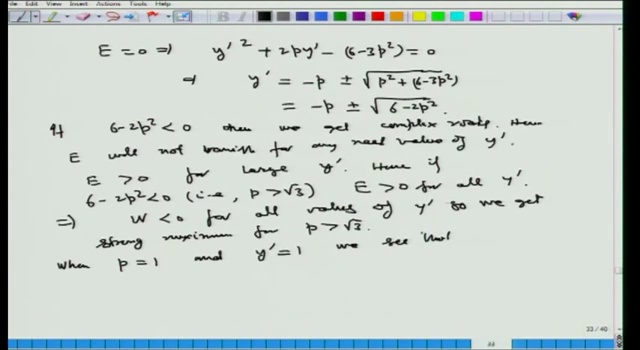 File Edit View Insert Actions Tools Help
E = 0 ⇒ y'² + 2py' - (6-3p²) = 0
⇒ y' = -p ± √(p² + (6-3p²))
= -p ± √(6-2p²).
If 6-2p² < 0 then we get complex roots. Hence
E will not vanish for any real value of y'.
E > 0 for large y'. Hence if
6-2p² < 0 (i.e., p > √3) E > 0 for all y'.
⇒ W < 0 for all values of y' so we get
strong maximum for p > √3.
When p = 1 and y' = 1 we see that
33 / 40
33